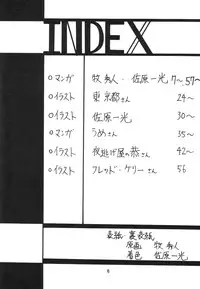 INDEX
○マンガ 牧 有人・佐原一光 7〜,57〜
○イラスト 東京都さん 24〜
○イラスト 佐原一光 30〜
○マンガ うめさん 35〜
○イラスト 夜逃げ屋の恭さん 42〜
○イラスト フレッド・ケリーさん 56
表紙・裏表紙
原画 牧 有人
着色 佐原一光